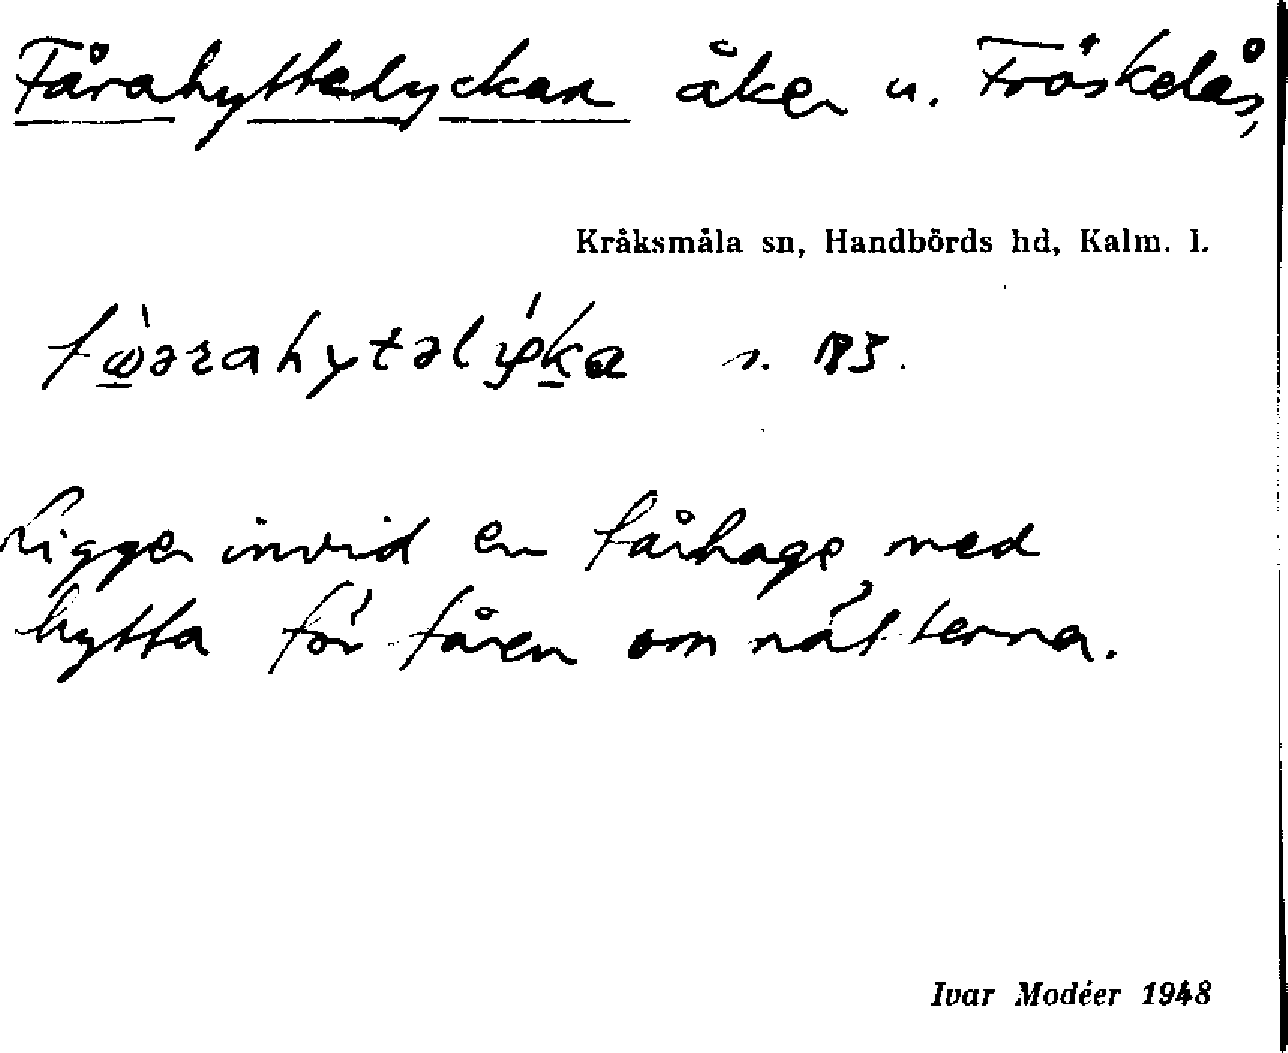 Fårahyttelyckan åker u. Fröskelås,
Kråksmåla sn, Handbörds hd, Kalm. l.
s. 185.
Ligger invid en fårhage med
hytta för fåren om nätterna.
Ivar Modéer 1948